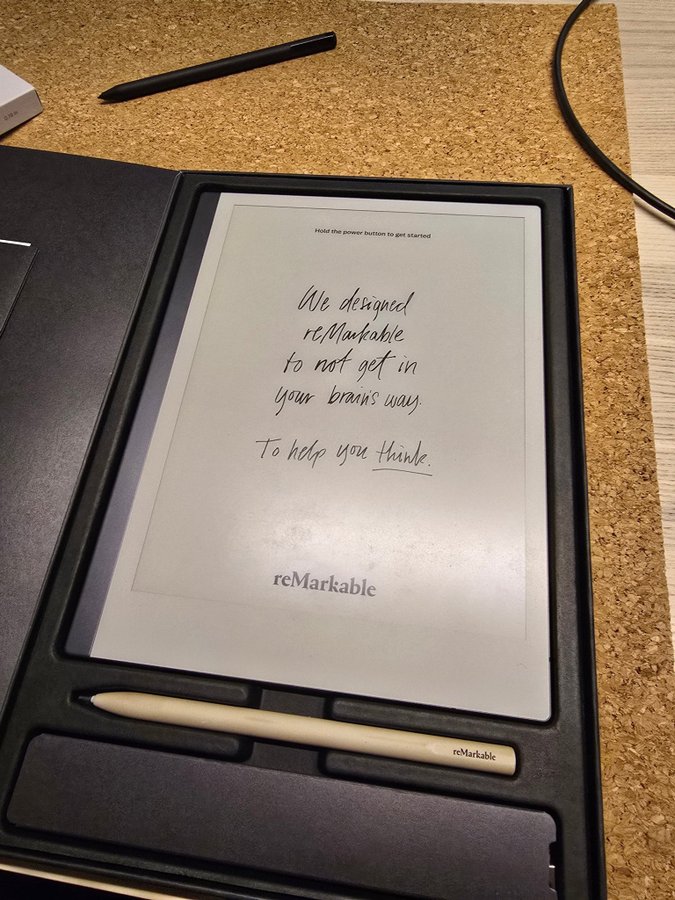 Hold the power button to get started
We designed
reMarkable
to not get in
your brain's way.
To help you think.
reMarkable
reMarkable